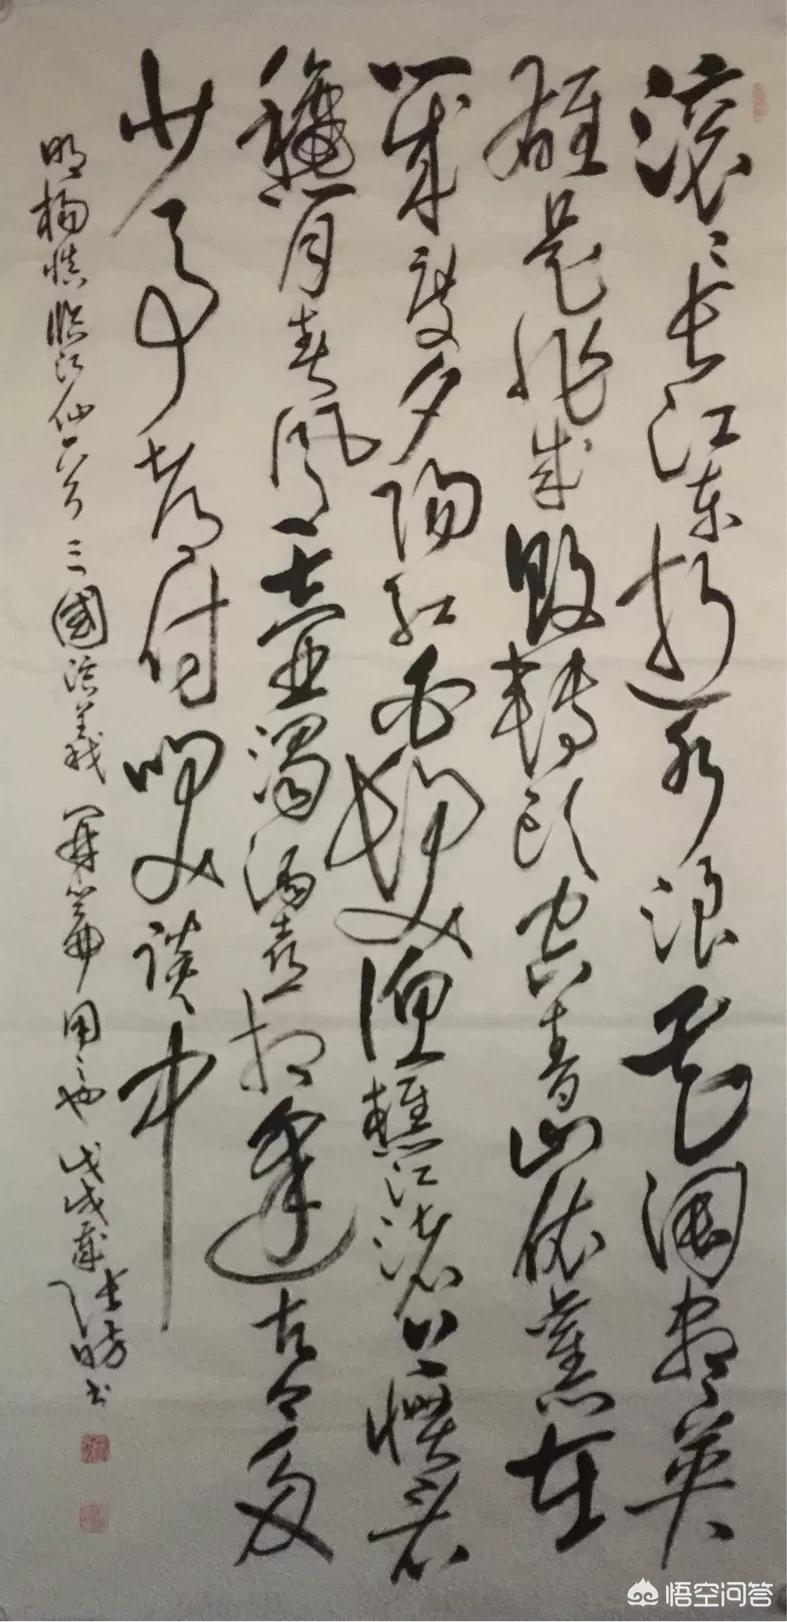 滚〻长江东逝水浪花淘尽英
雄是非成败转头空青山依旧在
几度夕阳红白发渔樵江渚上惯看
秋月春风一壶浊酒喜相逢古今多
少事都付笑谈中
明杨慎临江仙一首三国演义开篇用之也戊戌年书
悟空问答